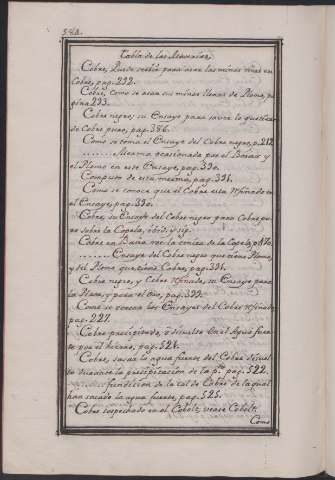 584.
Tabla de las Materias.
Cobre, para asar las minas ricas en
Cobre, pag. 232.
Cobre, como se asan sus minas llenas de Plomo, pa
gina 233.
Cobre negro; su Ensaye para saver lo que tiene
de Cobre puro, pag. 386.
Como se toma el Ensaye del Cobre negro, p. 217.
........ Merma ocasionada por el Borax y
el Plomo en este Ensaye, pag. 330.
Computo de esta merma, pag. 331.
Como se conoce que el Cobre esta refinado en
el Ensaye, pag. 330.
Cobre, su Ensaye del Cobre negro para Cobre pu
ro sobre la Copela, ibid. y sig.
Cobre en la Copela, p.
........ Ensaye del Cobre negro que tiene Plomo,
y del Plomo que tiene Cobre, pag. 331.
Cobre negro, y Cobre refinado, su Ensaye para
la Plata, y para el Oro, pag. 333.
Como se toman los Ensayes del Cobre refinado,
pag. 227.
Cobre precipitado, ó disuelto en el Agua fuer
te por el hierro, pag. 521.
Cobre, sacar la agua fuerte del Cobre
la precipitacion de la pag. 522.
........ fundicion de la cal de Cobre de la qual
han sacado la agua fuerte, pag. 525.
Cobre sospechado en el Cobolt, vease Cobolt.
Como